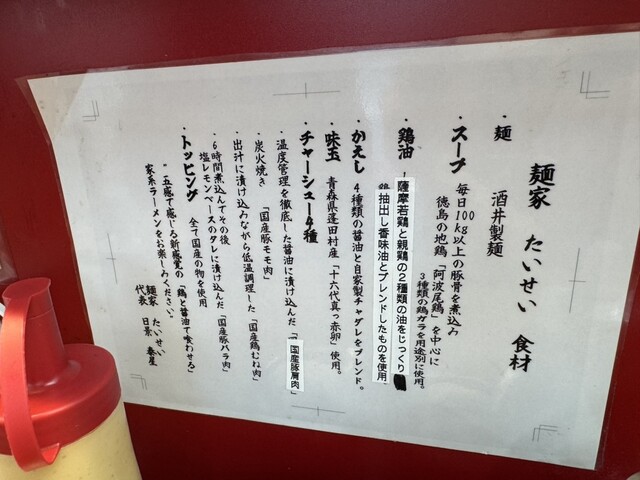 麺家 たいせい 食材
・麺 酒井製麺
・スープ 毎日100kg以上の豚骨を煮込み
徳島の地鶏「阿波尾鶏」を中心に
3種類の鶏ガラを用途別に使用。
・鶏油 薩摩若鶏と親鶏の2種類の油をじっくり
抽出し香味油とブレンドしたものを使用
・かえし 4種類の醤油と自家製チャダレをブレンド。
・味玉 青森県蓬田村産「十六代真っ赤卵」使用。
・チャーシュー4種
・温度管理を徹底した醤油に漬け込んだ「国産豚肩肉」
・炭火焼き 「国産豚モモ肉」
・出汁に漬け込みながら低温調理した「国産鶏むね肉」
・6時間煮込んでその後
塩レモンベースのタレに漬け込んだ「国産豚バラ肉」
・トッピング 全て国産の物を使用
"五感で感じる新感覚の「鶏と醤油で喰わせる」
家系ラーメンをお楽しみください"
麺家 たいせい
代表 日景 泰星